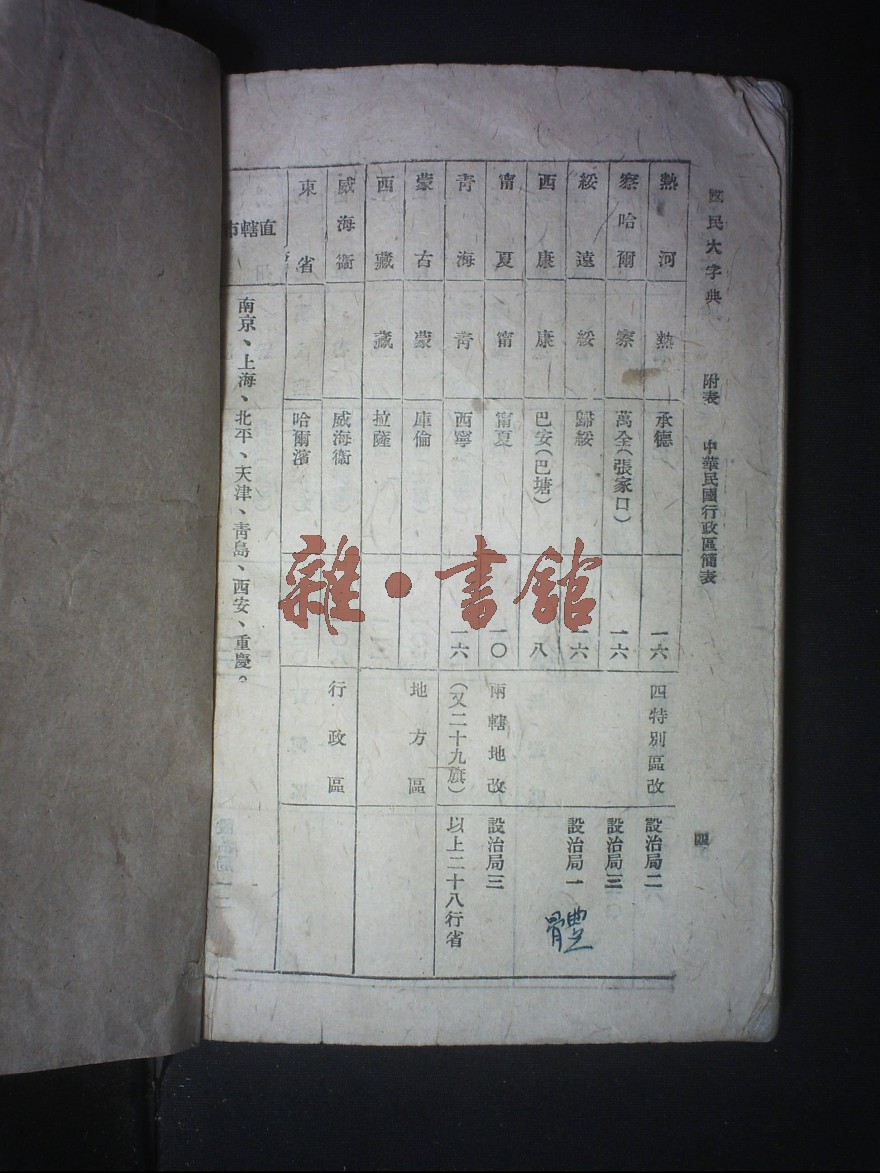 國民大字典 附表 中華民國行政區簡表 四
熱河 熱 承德 一六 四特別區改 設治局二
察哈爾 察 萬全(張家口) 一六 設治局三
綏遠 綏 歸綏 一六 設治局一
西康 康 巴安(巴塘) 八
甯夏 甯 甯夏 一〇 兩轄地改 設治局三
青海 青 西寧 一六 (又二十九旗) 以上二十八行省
蒙古 蒙 庫倫 地方區
西藏 藏 拉薩
威海衞 威海衞 行政區
東省 哈爾濱
直轄市 南京、上海、北平、天津、青島、西安、重慶。
體
雜·書館